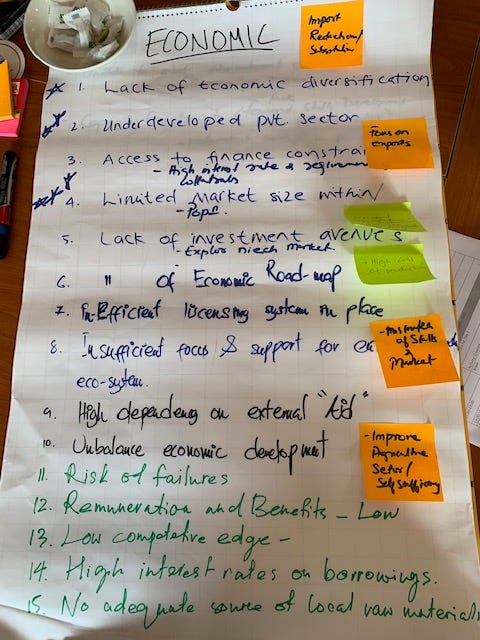 ECONOMIC
Import
Reduction/
Substitution
1. Lack of Economic diversification
2. Underdeveloped pvt. sector
3. Access to finance constrai
- High interest rate & requirement
collaterals
Focus on
exports
4. Limited Market size within/
- Popn.
5. Lack of investment avenues
- Explore niech market.
- High cost
of production
6. " of Economic Road-map
7. In-Efficient licensing system in place
8. Insufficient focus & support for en
eco-system.
- Mismatch
of Skills
&
Market
9. High dependency on external "Aid"
10. Unbalance economic development
- Improve
Agriculture
Sector/
Self Sufficiency
11. Risk of failures
12. Remuneration and Benefits - Low
13. Low competetive edge -
14. High interest rates on borrowings.
15. No adequate source of local raw materials